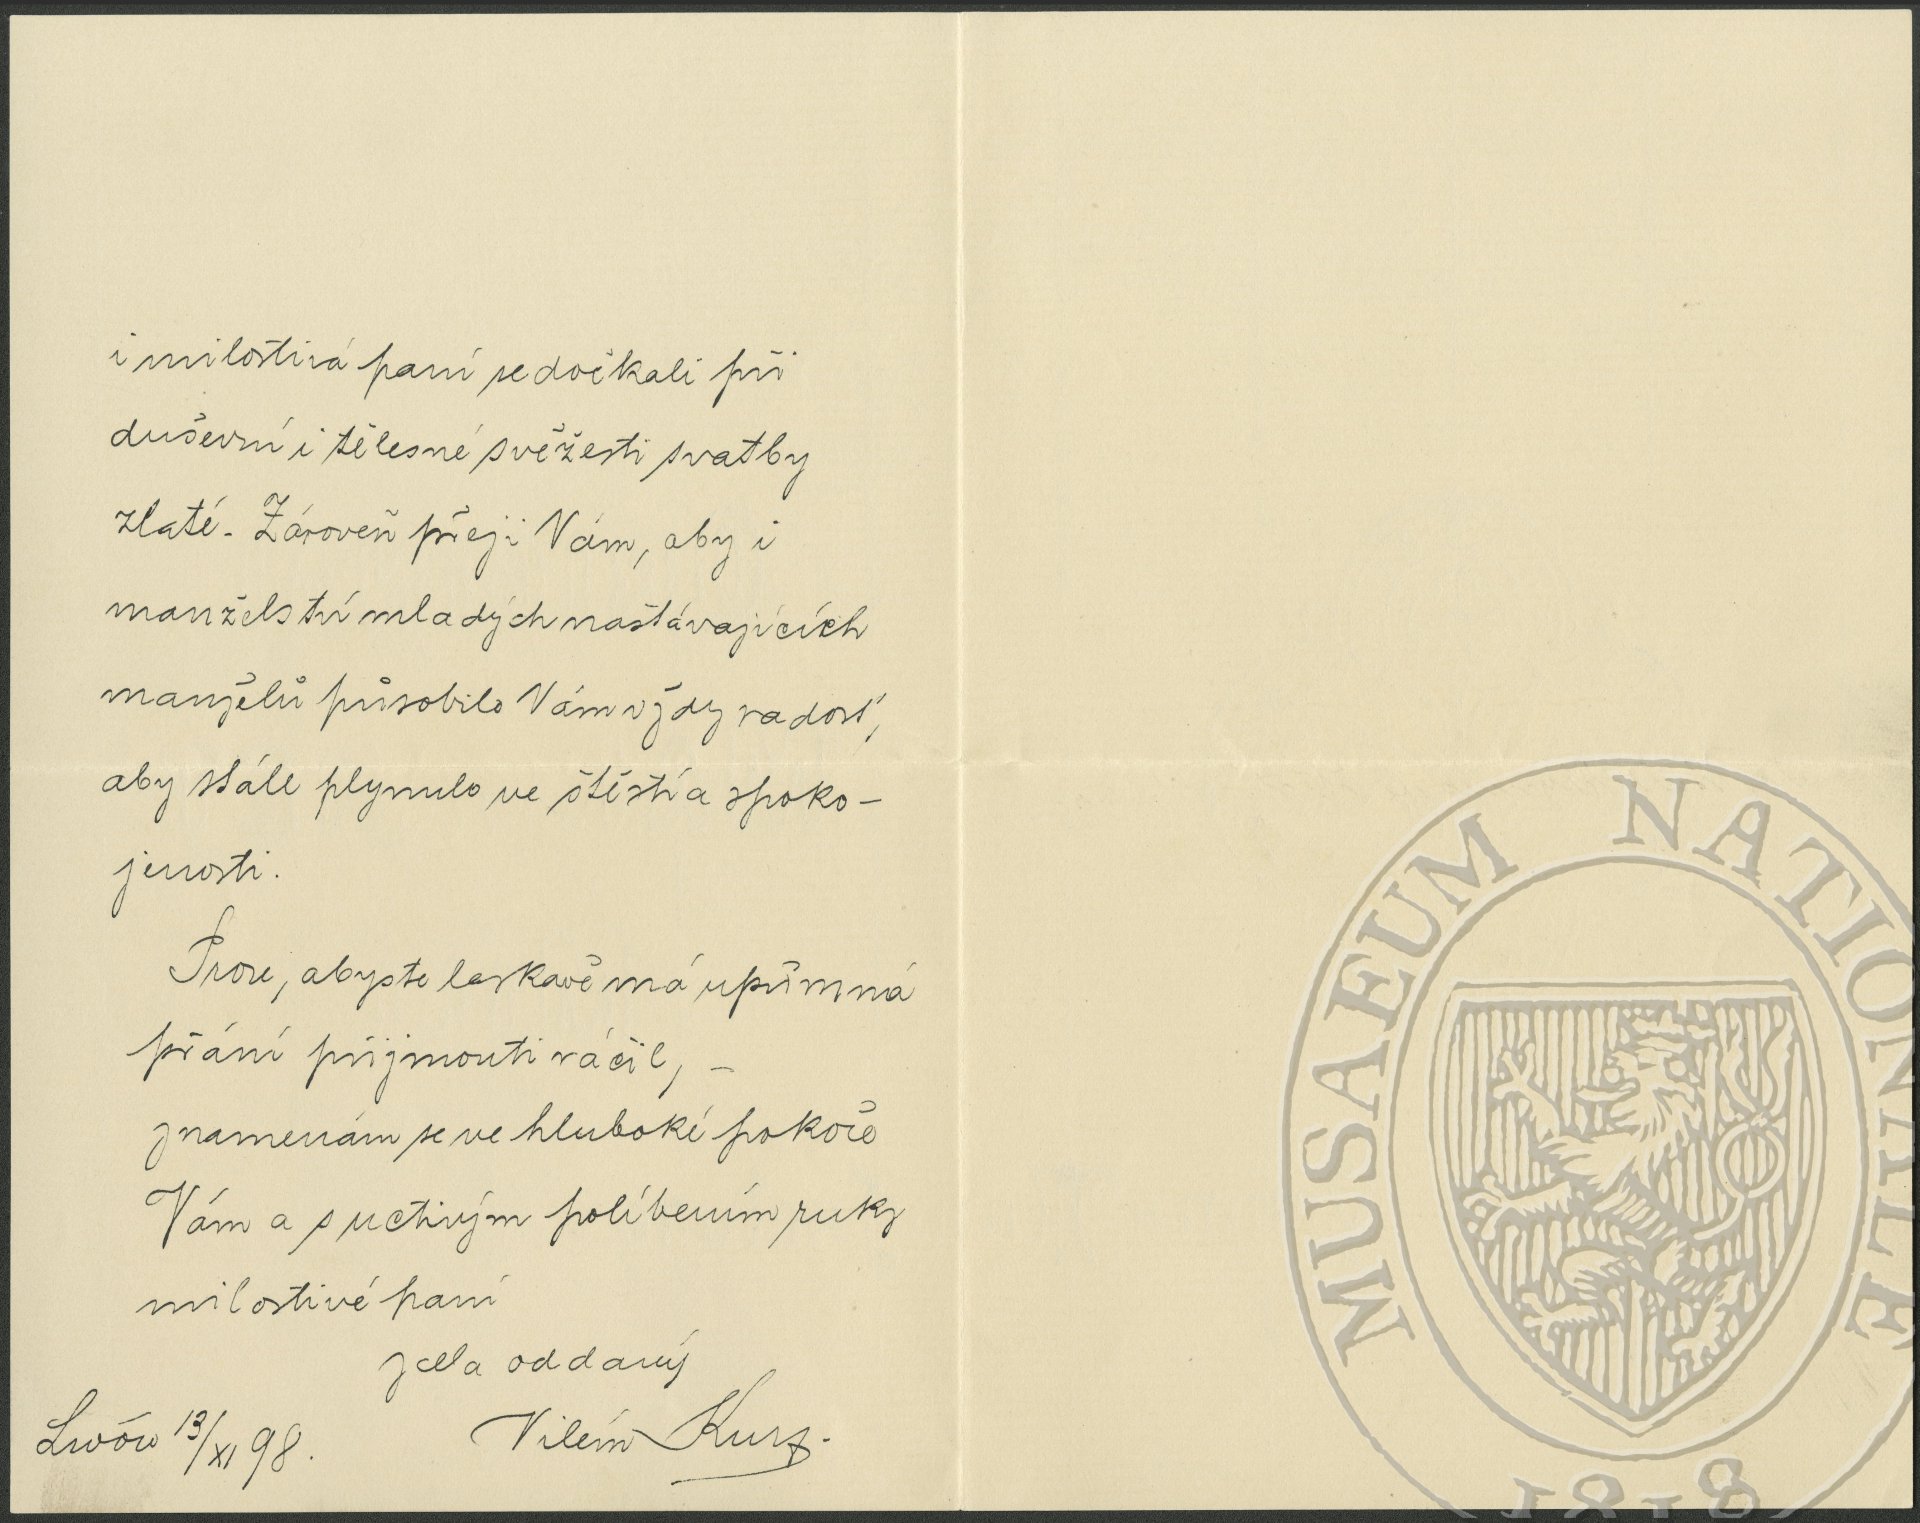 i milostivá paní se dočkali při
duševní i tělesné svěžesti svatby
zlaté. Zároveň přeji Vám, aby i
manželství mladých nastávajících
manželů působilo Vám vždy radost,
aby stále plynulo ve štěstí a spoko-
jenosti.
Prose, abyste laskavě má upřímná
přání přijmouti ráčil, –
znamenám se ve hluboké pokoře
Vám a s uctivým políbením ruky
milostivé paní
zcela oddaný
Vilém Kurz.
Lwów 13/XI 98.
MUSAEUM NATIONALE
1818